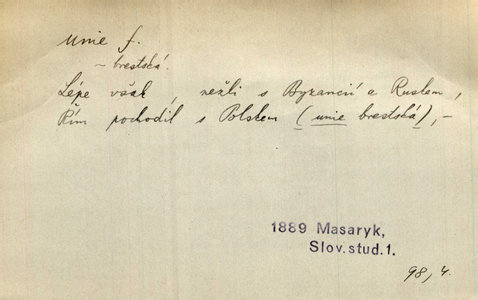 unie f.
~ brestská.
Lépe však, nežli s Byzancií a Ruskem,
Řím pochodil s Polskem (unie brestská), –
1889 Masaryk,
Slov. stud. 1.
98, 4.